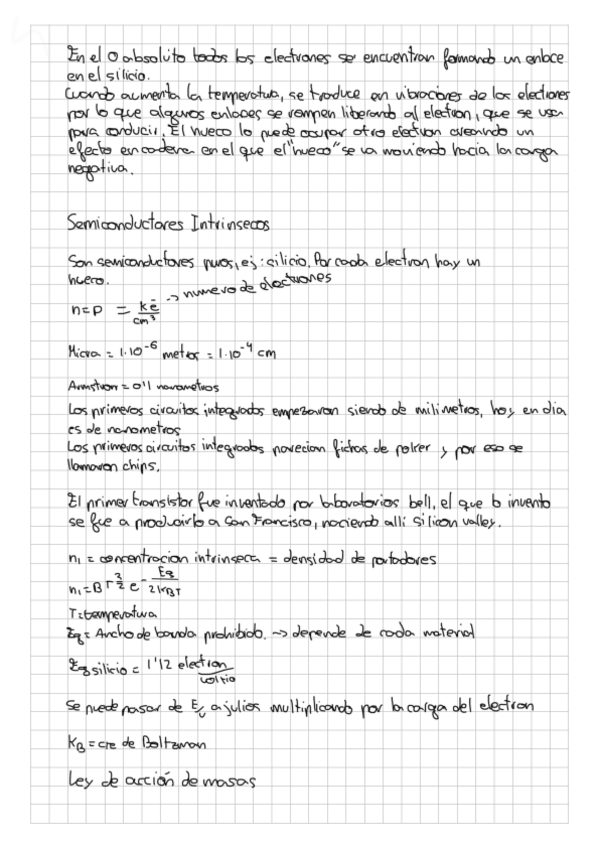 En el 0 absoluto todos los electrones se encuentran formando un enlace
en el silicio.
Cuando aumenta la temperatura, se traduce en vibraciones de los electrones
por lo que algunos enlaces se rompen liberando al electron, que se usa
para conducir. El hueco lo puede ocupar otro electron creando un
efecto en cadena en el que el "hueco" se va moviendo hacia la carga
negativa.
Semiconductores Intrinsecos
Son semiconductores puros, ej: silicio. Por cada electron hay un
hueco.
n=p = kē/cm³ -> numero de electrones
Micra = 1·10⁻⁶ metros = 1·10⁻⁴ cm
Armstron = 0'1 nanometros
Los primeros circuitos integrados empezaron siendo de milimetros, hoy en dia
es de nanometros
Los primeros circuitos integrados parecian fichas de poker y por eso se
llamaron chips.
El primer transistor fue inventado por laboratorios bell, el que lo invento
se fue a producirlo a San Francisco, naciendo alli silicon valley.
n₁ = concentracion intrinseca = densidad de portadores
n₁ = B T^(3/2) e^(-Eg/2KBT)
T = temperatura
Eg = Ancho de banda prohibido. -> depende de cada material
Eg silicio = 1'12 electron/voltio
Se puede pasar de Ev a julios multiplicando por la carga del electron
KB = cte de Boltzman
Ley de acción de masas